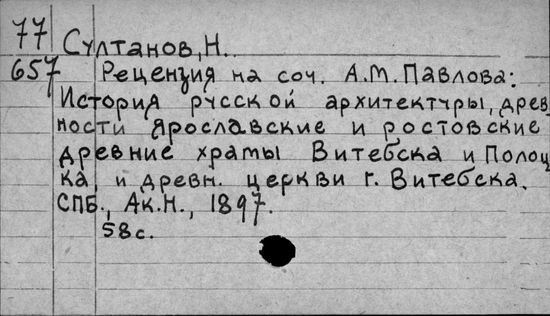 77 Султанов, Н.
657 Рецензия на соч. А.М. Павлова:
История русской архитектуры, древ-
ности ярославские и ростовские
древние храмы Витебска и Полоц
ка, и древн. церкви г. Витебска.
СПБ., Ак.Н., 1897.
58 с.